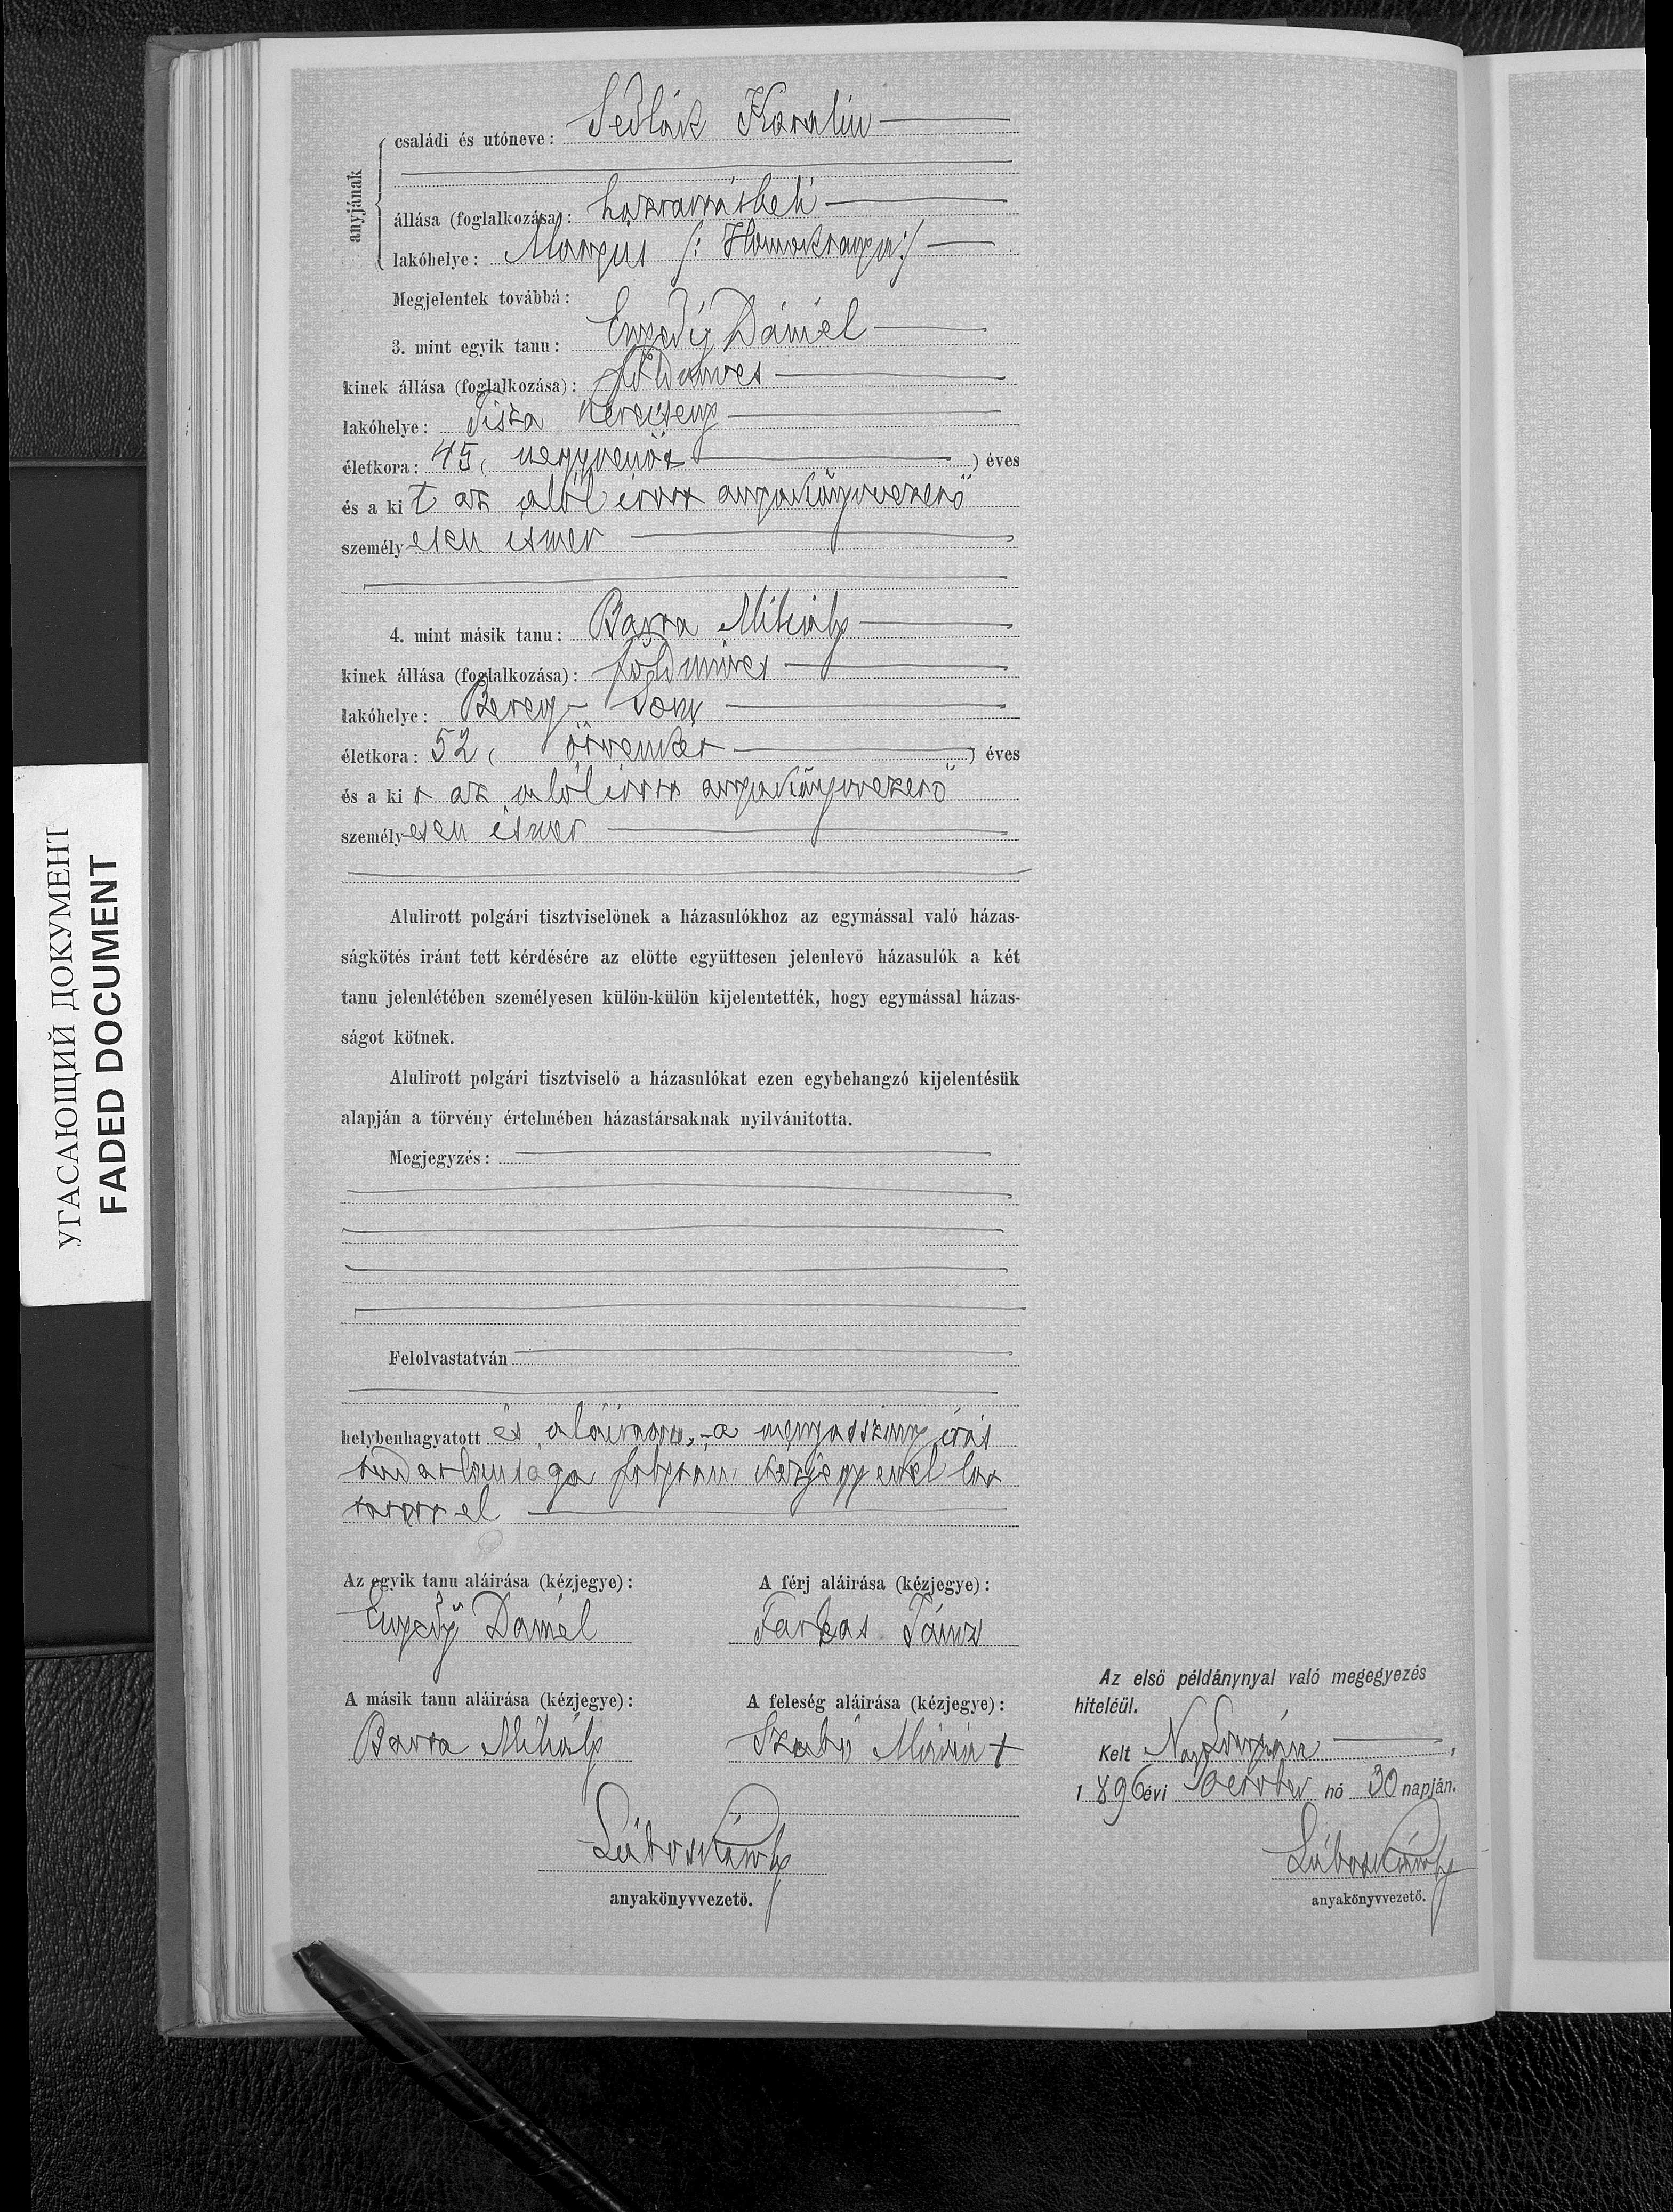 anyjának
családi és utóneve: Sedlák Karolin
állása (foglalkozása): háztartásbeli
lakóhelye: /: :/
Megjelentek továbbá:
3. mint egyik tanu: Enyedÿ Dániel
kinek állása (foglalkozása): földmíves
lakóhelye: Tisza Kerecseny
életkora: 45, (negyvenöt) éves
és a ki t az alólírott anyakönyvvezető
személyesen ismer
4. mint másik tanu: Barta Mihály
kinek állása (foglalkozása): földmíves
lakóhelye: Bereg-Som
életkora: 52, (ötvenkét) éves
és a ki t az alólírott anyakönyvvezető
személyesen ismer
Alulirott polgári tisztviselönek a házasulókhoz az egymással való házas-
ságkötés iránt tett kérdésére az elötte együttesen jelenlevö házasulók a két
tanu jelenlétében személyesen külön-külön kijelentették, hogy egymással házas-
ságot kötnek.
Alulirott polgári tisztviselö a házasulókat ezen egybehangzó kijelentésük
alapján a törvény értelmében házastársaknak nyilvánitotta.
Megjegyzés:
Felolvastatván
helybenhagyatott és aláíratott, - a menyasszony írás
tudatlansága folytán kézjegyével lát
tatott el
Az egyik tanu aláirása (kézjegye): A férj aláirása (kézjegye):
Enyedÿ Dániel Farkas János
A másik tanu aláirása (kézjegye): A feleség aláirása (kézjegye):
Barta Mihály Szabó Mária +
Károly
anyakönyvvezetö.
Az első példánynyal való megegyezés
hiteléül.
Kelt Nagy Dobrony,
1896 évi October hó 30 napján.
Károly
anyakönyvvezetö.
УГАСАЮЩИЙ ДОКУМЕНТ
FADED DOCUMENT